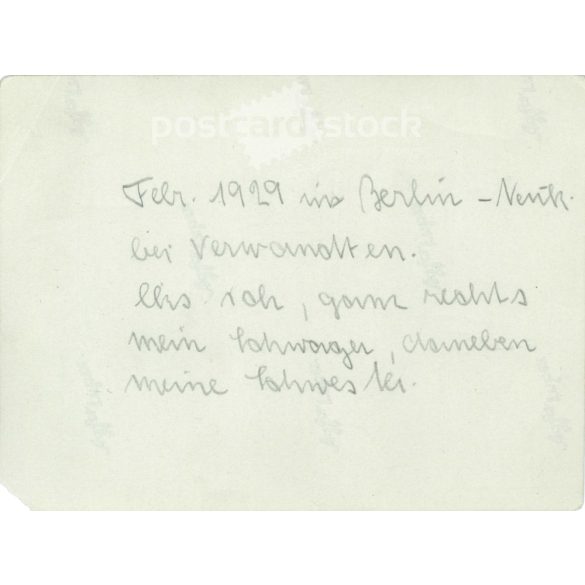 postcard stock
Febr. 1929 in Berlin - Neuk.
bei Verwandten.
ich, ganz rechts
mein Schwager, daneben
meine Schwester.